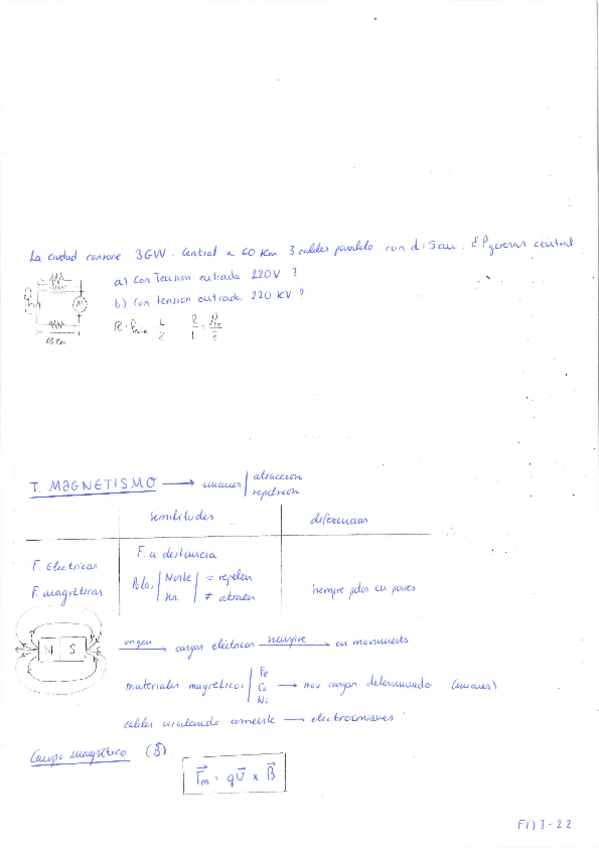 La ciudad consume 3GW. Central a 60 Km 3 cables paralelo con d=5cm. ¿P generas central
a) Con Tension entrada 220V ?
b) Con tension entrada 220 KV ?
60 Km
T. MAGNETISMO → imanes | atraccion
repulsion
similitudes diferencias
F. Electricas F. a distancia
F. magnéticas Polos | Norte = repelen siempre polos en pares
Sur ≠ atraen
N S
origen → cargas eléctricas siempre → en movimiento
materiales magnéticos | Fe
Co → mov cargas determinado (imanes)
Ni
cables circulando corriente → electroimanes
Campo magnético (B⃗)
F⃗m = qv⃗ x B⃗
F()I-22